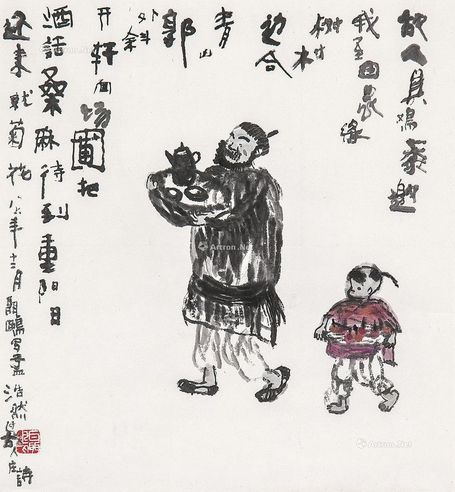 故人具鸡黍邀
我至田家绿
树村
边合
青山
郭
外斜
开轩面场圃把
酒话桑麻待到重阳日
还来就菊花 年十二月 写孟浩然过故人庄诗
Artron.Net
Artron.Net